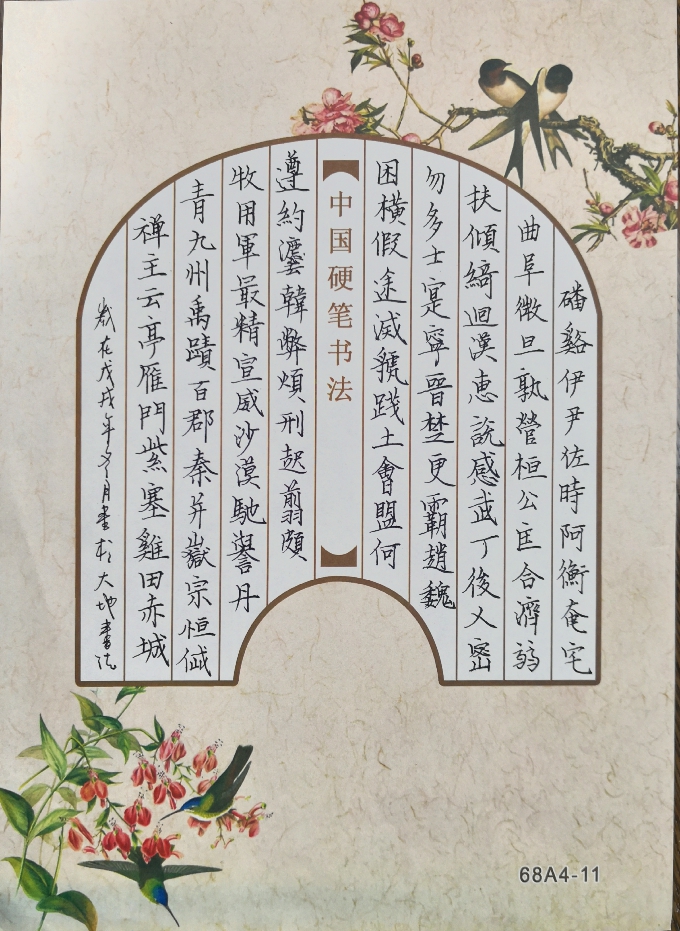 磻谿伊尹佐時阿衡奄宅
曲阜微旦孰營桓公匡合濟弱
扶傾綺迴漢惠說感武丁俊乂密
勿多士寔寧晉楚更霸趙魏
困橫假途滅虢踐土會盟何
中国硬笔书法
遵約灋韓弊煩刑起翦頗
牧用軍最精宣威沙漠馳譽丹
青九州禹蹟百郡秦并嶽宗恒岱
禅主云亭雁門紫塞雞田赤城
歲在戊戌年 月書於大地書法
68A4-11